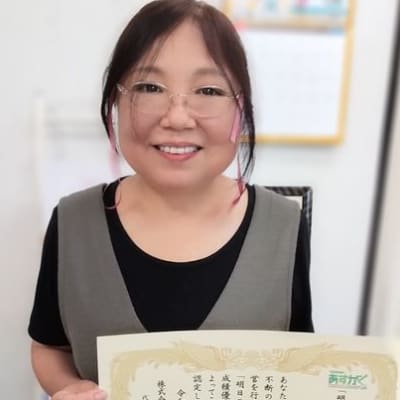 「明
あすがく
あなた
不断の
営を行
「明日
成績優
よってこ
認定し
令
株式会